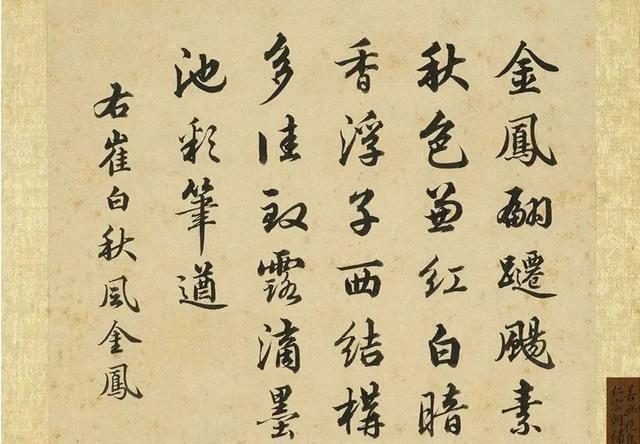 金鳳翩躚颺素
秋色兼紅白暗
香浮子西結構
多佳致露滴墨
池彩筆遒
右崔白秋風金鳳